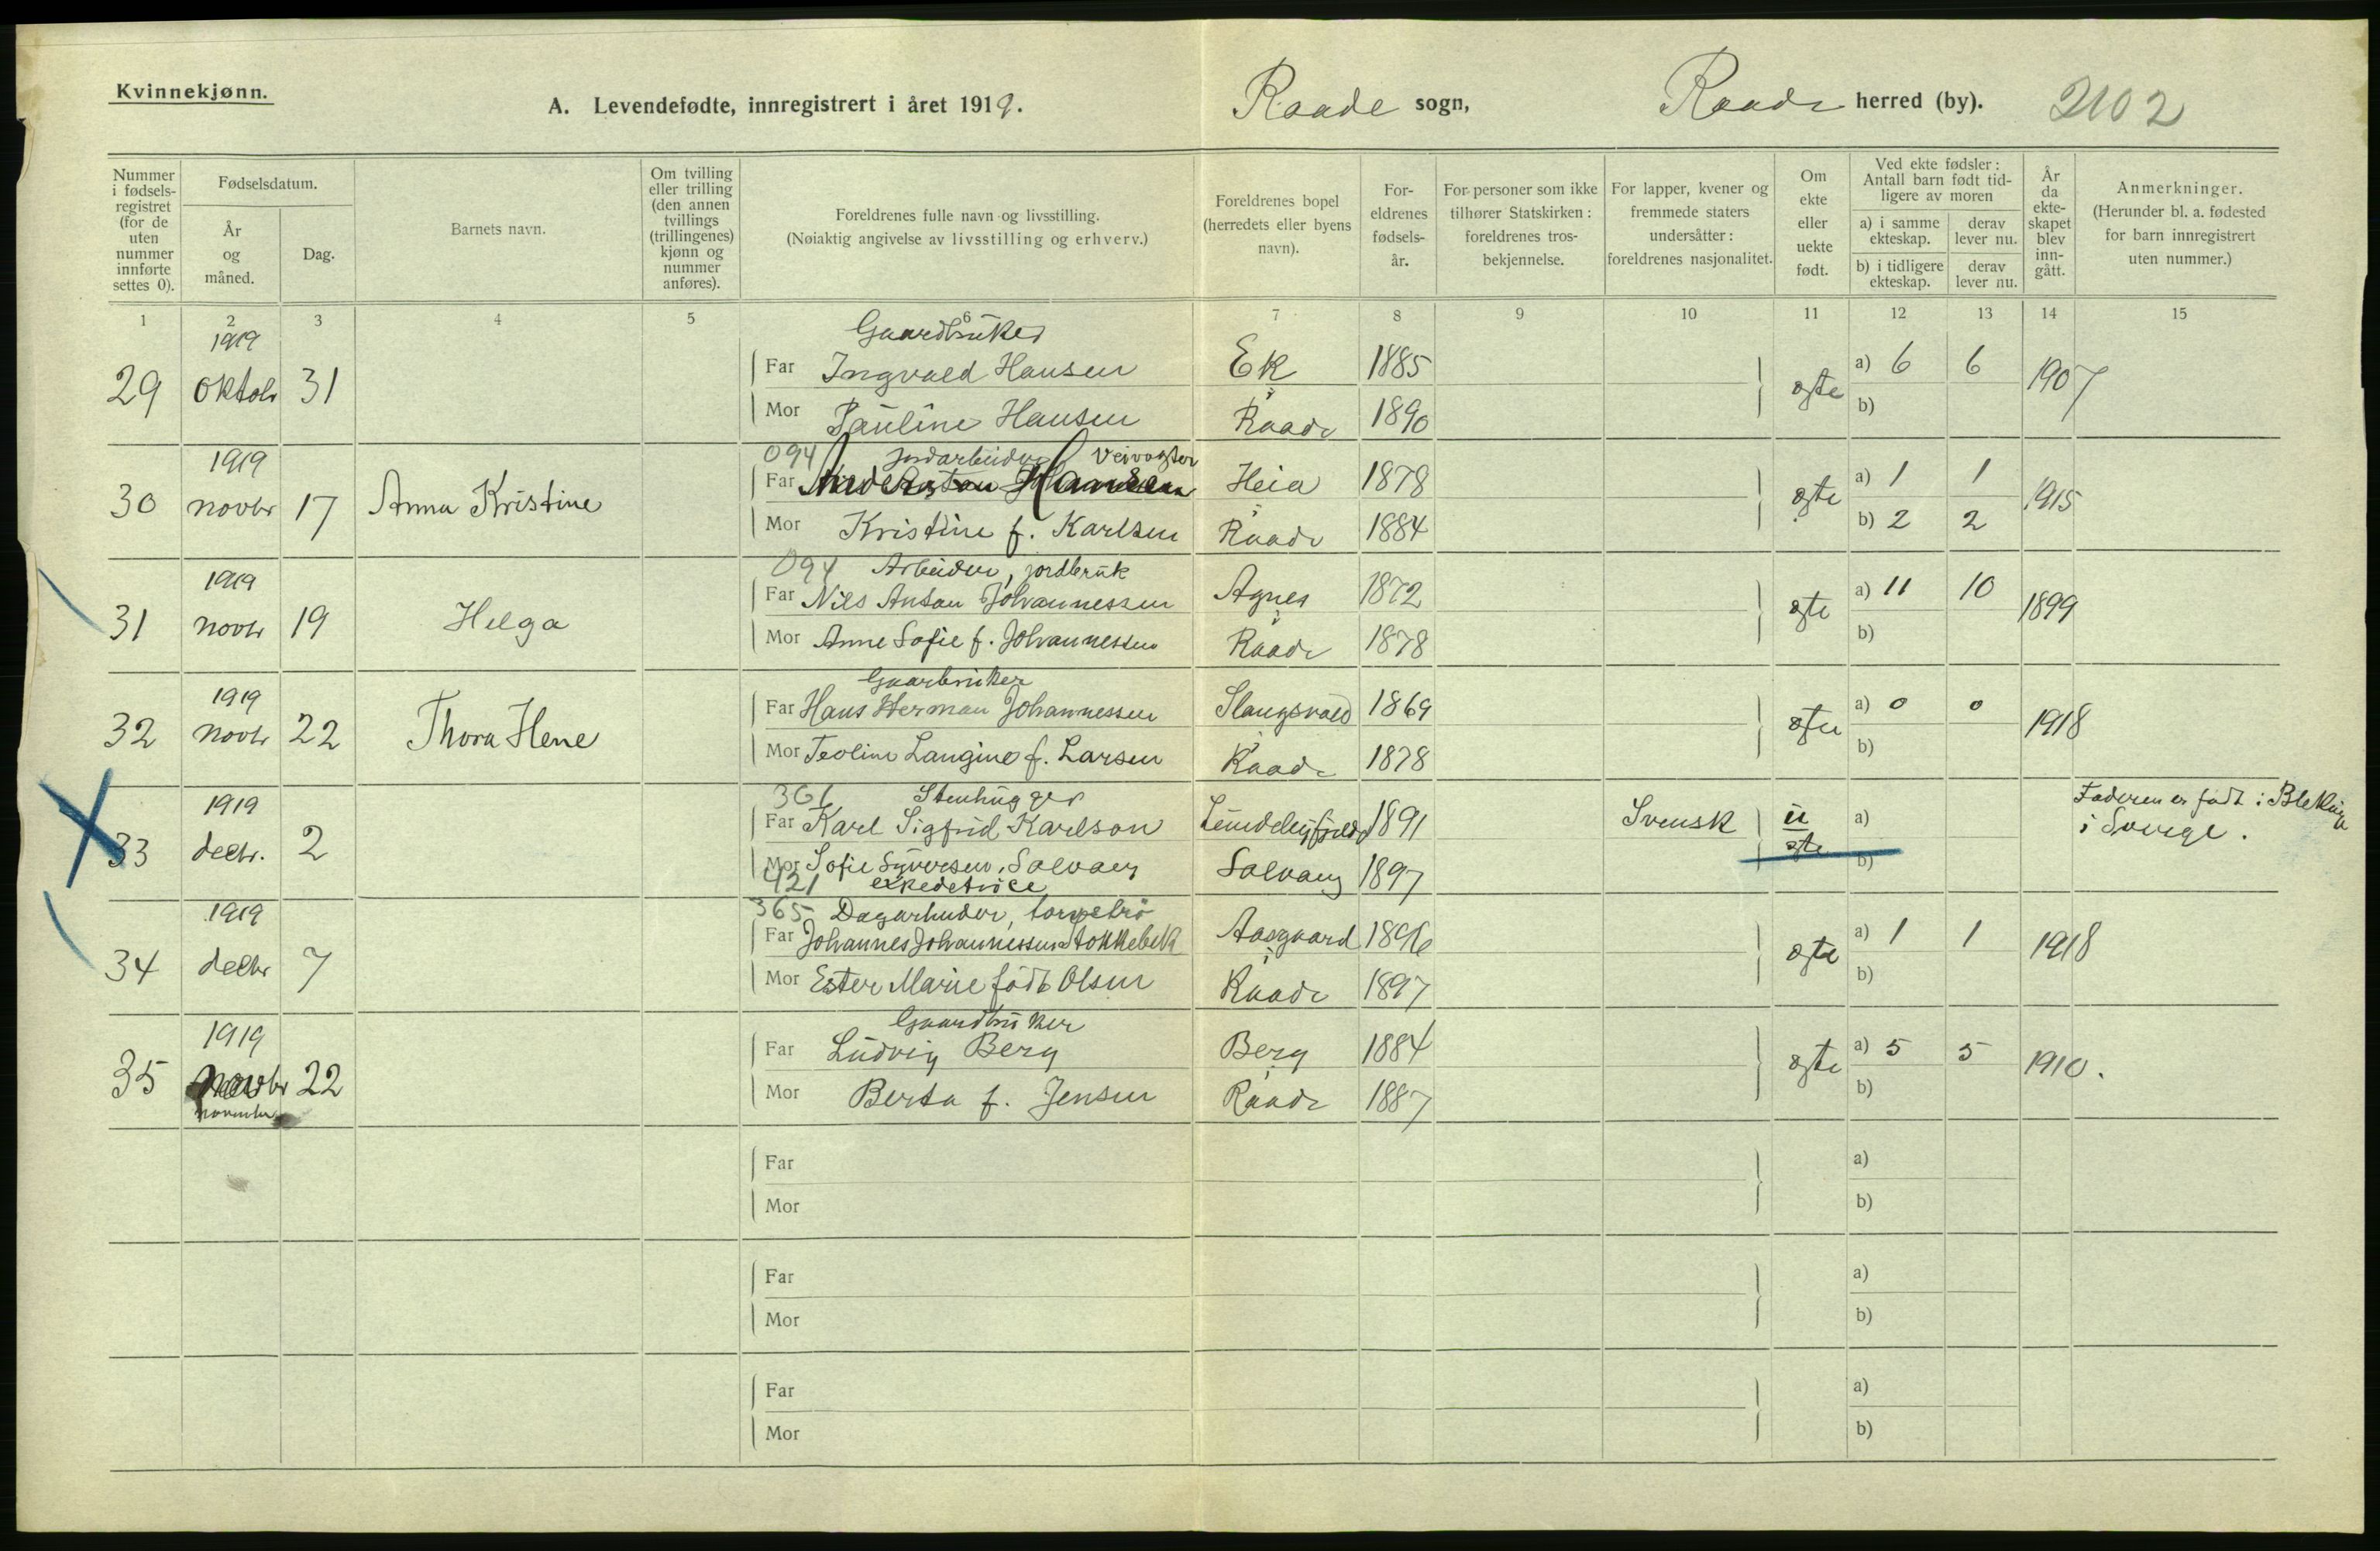 Kvinnekjønn.
A. Levendefødte, innregistrert i året 1919.
Raade sogn, Raade herred (by). 2102
Nummer i fødsels- registret (for de uten nummer innførte settes 0).
Fødselsdatum.
År og måned.
Dag.
Barnets navn.
Om tvilling eller trilling (den annen tvillings (trillingenes) kjønn og nummer anføres).
Foreldrenes fulle navn og livsstilling.
(Nøiaktig angivelse av livsstilling og erhverv.)
Foreldrenes bopel (herredets eller byens navn).
For- eldrenes fødsels- år.
For personer som ikke tilhører Statskirken: foreldrenes tros- bekjennelse.
For lapper, kvener og fremmede staters undersåtter: foreldrenes nasjonalitet.
Om ekte eller uekte født.
Ved ekte fødsler: Antall barn født tid- ligere av moren
a) i samme ekteskap.
derav lever nu.
b) i tidligere ekteskap.
derav lever nu.
År da ekte- skapet blev inn- gått.
Anmerkninger.
(Herunder bl. a. fødested for barn innregistrert uten nummer.)
1 2 3 4 5 6 7 8 9 10 11 12 13 14 15
1919 Gaardbruker
29 oktobr 31 Far Ingvald Hansen Ek 1885 ægte a) 6 6 1907
Mor Pauline Hansen i Raade 1890 b)
1919 094 Jordarbeider Veivogter
30 novbr 17 Anna Kristine Far Hansen Heia 1878 ægte a) 1 1 1915
Mor Kristine f. Karlsen i Raade 1884 b) 2 2
1919 094 Arbeider, jordbruk
31 novbr 19 Helga Far Nils Anton Johannessen Agnes 1872 ægte a) 11 10 1899
Mor Anne Sofie f. Johannessen i Raade 1878 b)
1919 Gaarbruker
32 novbr 22 Thora Hene Far Hans Herman Johannessen Slangsvold 1869 ægte a) 0 0 1918
Mor Teoline Langine f. Larsen i Raade 1878 b)
1919 361 Stenhugger
33 decbr. 2 Far Karl Sigfrid Karlson 1891 Svensk u ægte a) Faderen er født i Blekinge i Sverge.
Mor Sofie Syversen, Solvang Solvang 1897 b)
421 expedetrice
1919 365 Dagarbeider,
34 decbr 7 Far Johannes Johannessen Stokkebek Aasgaard 1896 ægte a) 1 1 1918
Mor Ester Marie født Olsen i Raade 1897 b)
1919 Gaardbruker
35 novbr 22 Far Ludvig Berg Berg 1884 ægte a) 5 5 1910.
november Mor Berta f. Jensen i Raade 1887 b)
Far a)
Mor b)
Far a)
Mor b)
Far a)
Mor b)